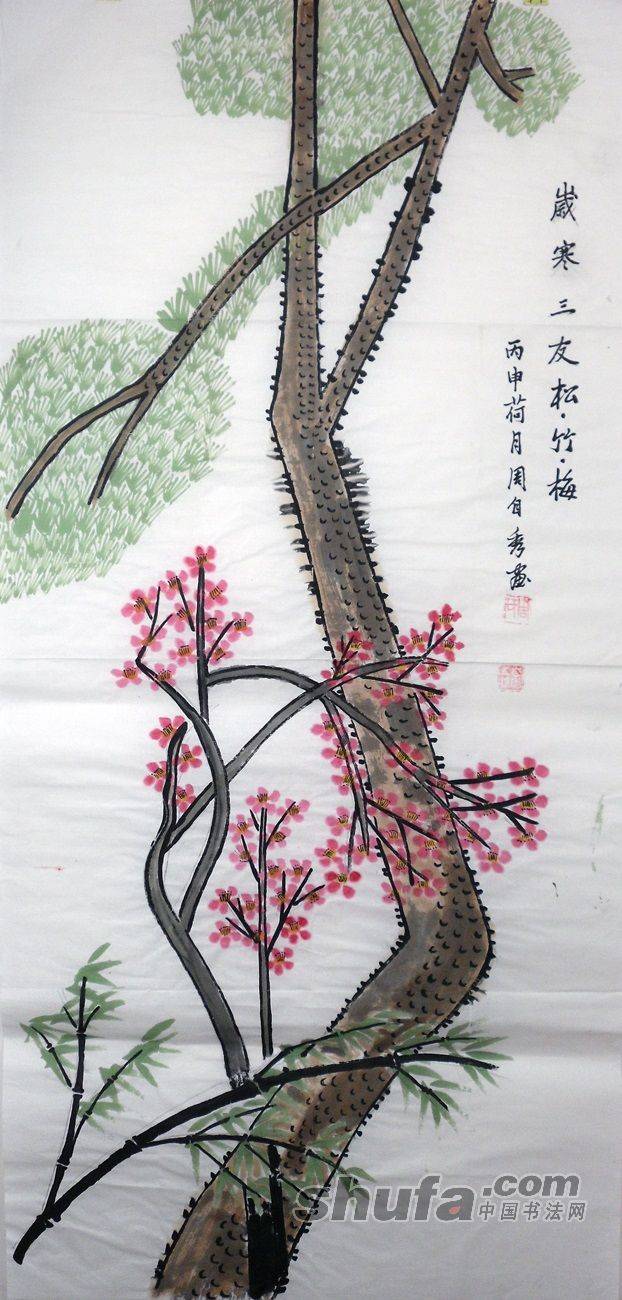 歲寒三友松·竹·梅
丙申荷月周自秀画
shufa.com
中国书法网